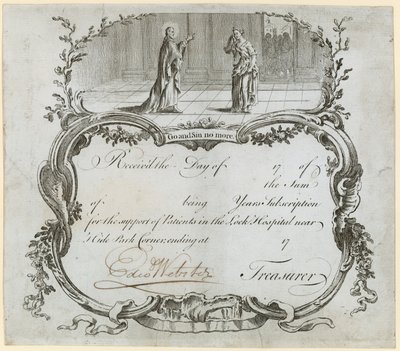 Go and Sin no more.
Received the Day of 17 of
the Sum
of being Years Subscription
for the support of Patients in the Lock Hospital near
Hide Park Corner, ending at 17
Webster Treasurer